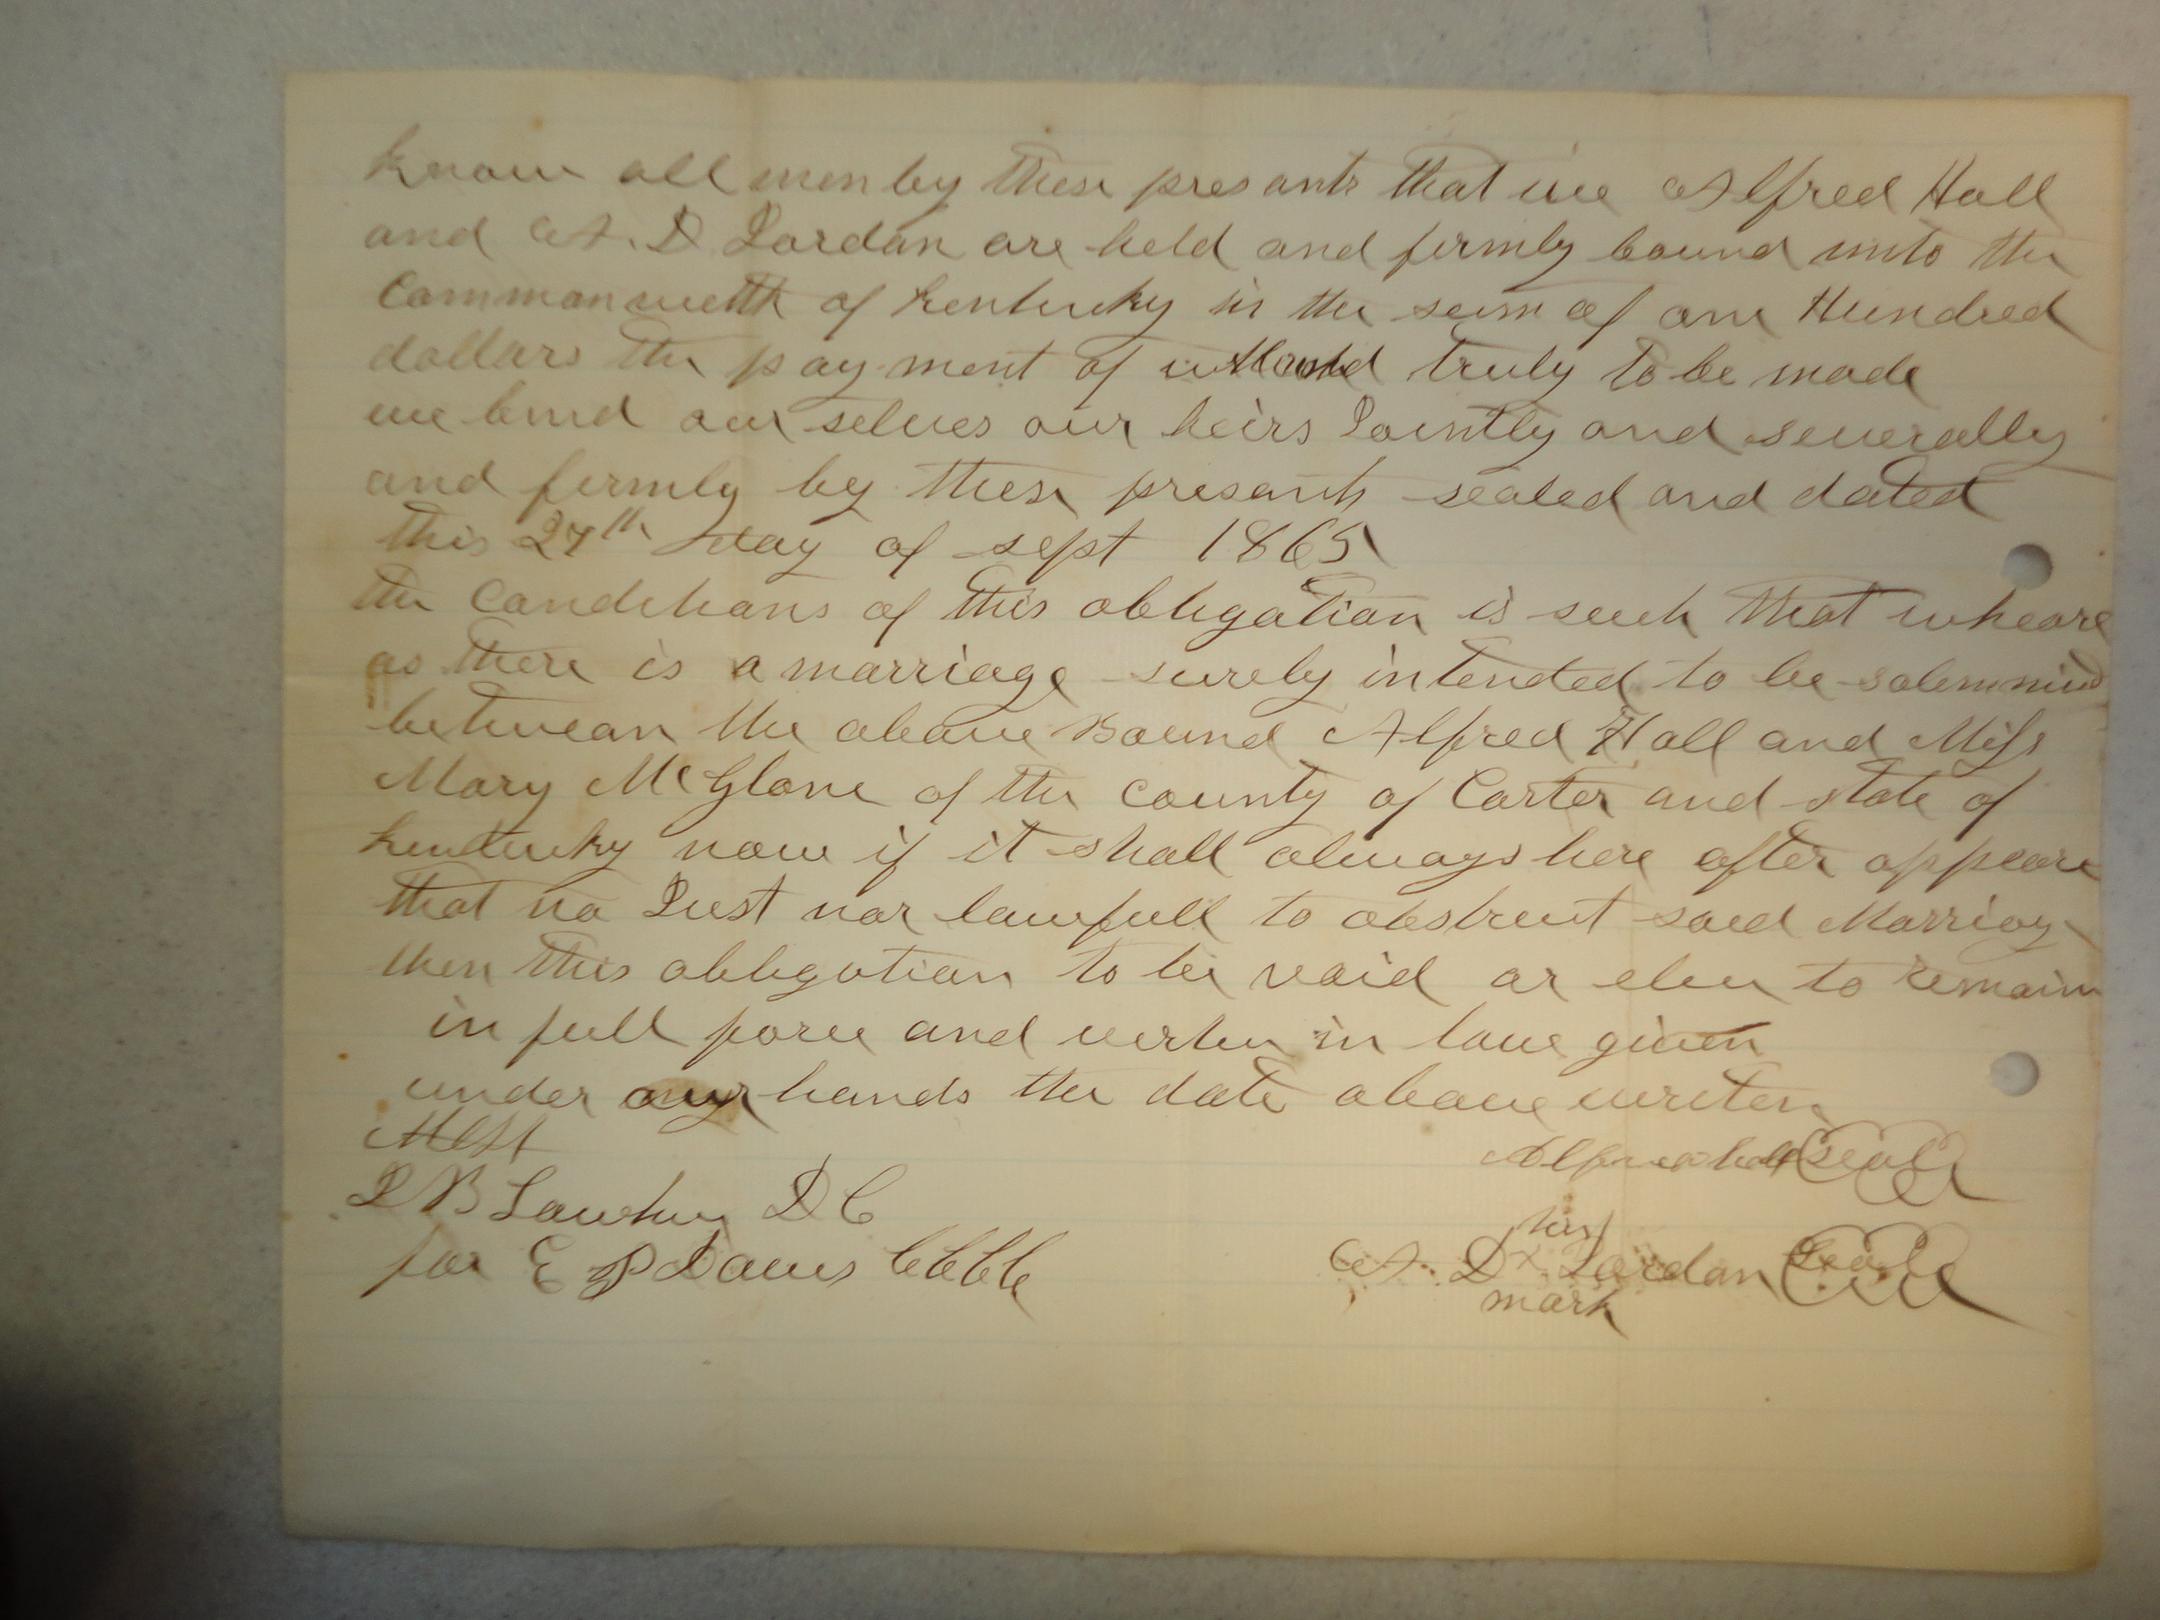 know all men by these presants that we Alfred Hall
and A. D Jordan are held and firmly bound unto the
Commonwelth of kentucky in the sum of one Hundred
dollars the payment of well and truly to be made
we bind our selves our heirs Jointly and severally
and firmly by these presants sealed and dated
this 27th day of sept 1865
the Conditions of this obligation is such that wheare
as there is a marriage surely intended to be solemnised
betwean the above Bound Alfred Hall and Miss
Mary McGlone of the County of Carter and state of
kentucky now if it shall always here after appeare
that no Just nor lawfull to obstruct said Marriag
then this obligation to be void or else to remain
in full force and vertu in law given
under our hands the date above writen
Attest
J B D C
for E P Davis C C C C
Alfred hall Seal
his
A. D x Jordan Seal
mark